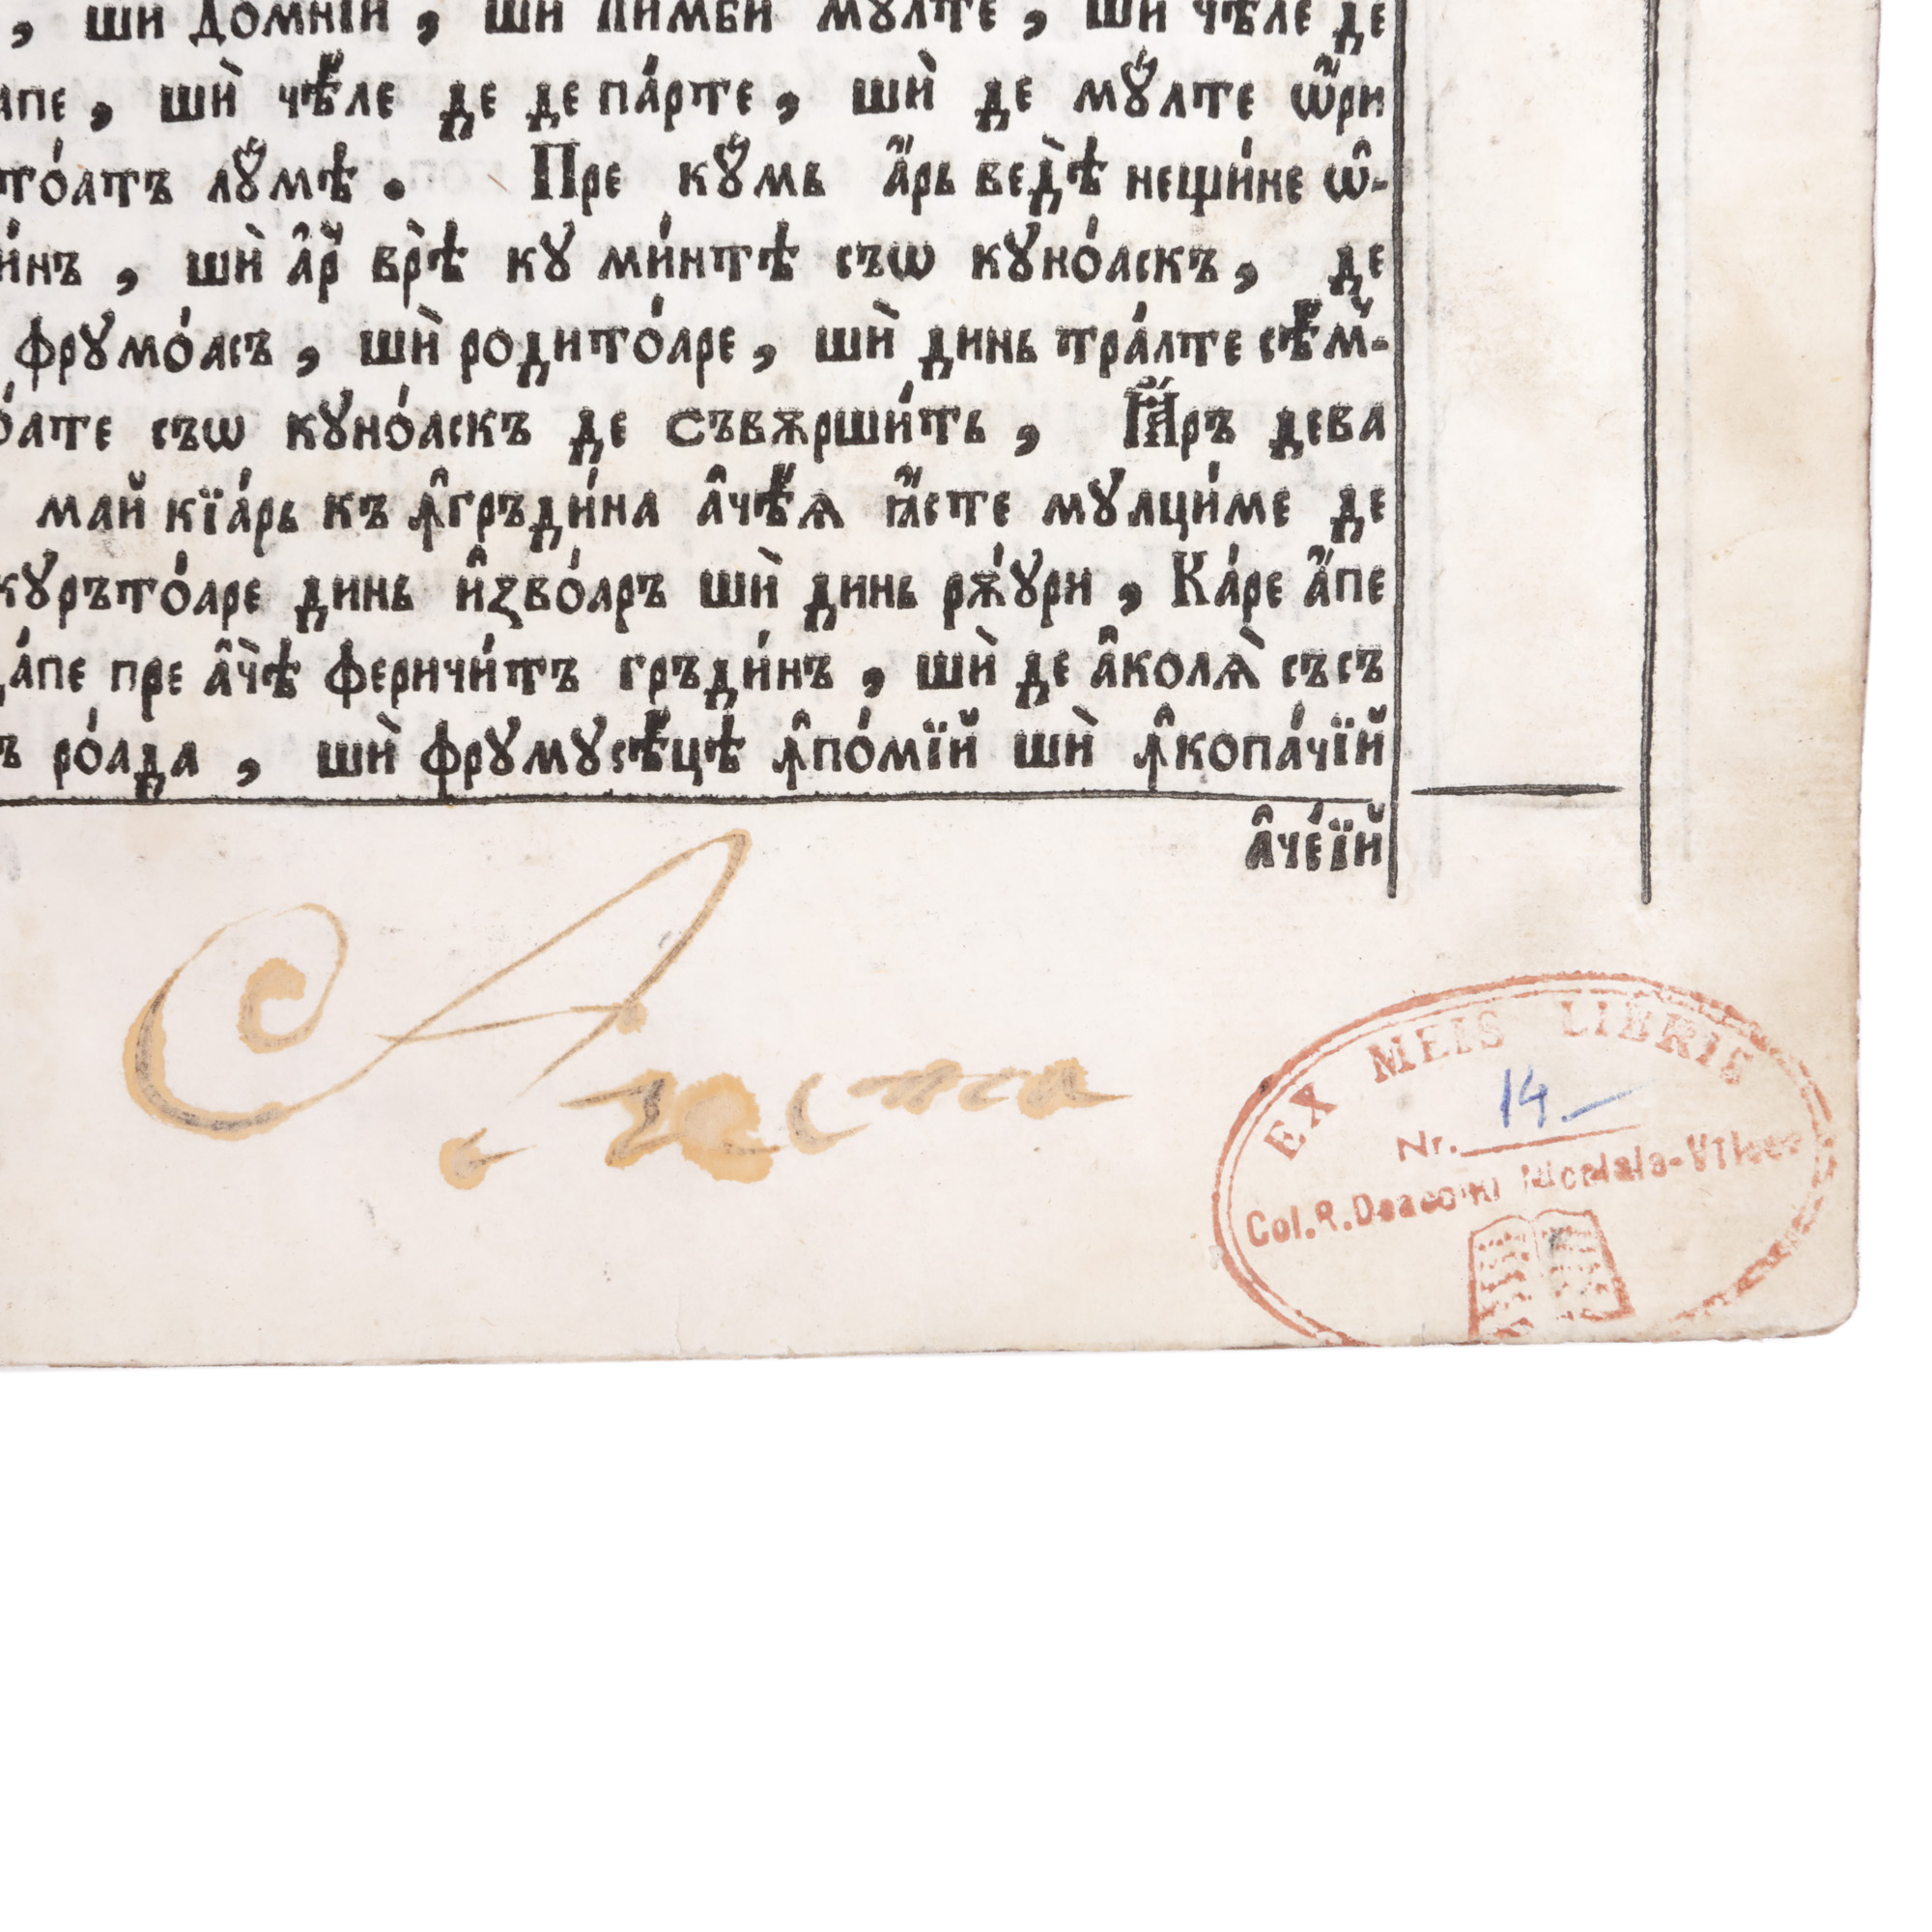 , ши домнїй , ши лимби мꙋлте , ши чѣле де
апе , шѝ чѣ́ле де де па́рте , шѝ де мꙋ́лте ѡ҆́ри
то́атъ лꙋ́мѣ . Пре кꙋ́мь а҆́рь ведѣ̀ нещи́не ѡ҆-
и́нъ , шѝ а҆р врѣ̀ кꙋ ми́нтѣ съѡ кꙋно́аскъ , де
фрꙋмо́асъ , шѝ родито́аре , шѝ динь тра́лте сѣ́м-
о́ате съѡ кꙋно́аскъ де съвѫрши́ть , Ꙗ҆́ръ дева
май кїа́рь къ ꙟ҆гръди́на а҆чѣ́ѧ ꙗ҆́сте мꙋлци́ме де
кꙋръто́аре динь и҆зво́аръ шѝ динь рѫ́ꙋри , Ка́ре а҆́пе
а́пе пре а҆чѣ̀ феричи́тъ гръди́нъ , шѝ де а҆колѧ̀ съсъ
ъ ро́ада , шѝ фрꙋмꙋсѣ́цѣ ꙟ҆по́мїй шѝ ꙟ҆копа́чїй
а҆че́їй
EX MEIS LIBRIS
Nr. 14.-
Col. R. Deaconu Nicolala-Vilcea